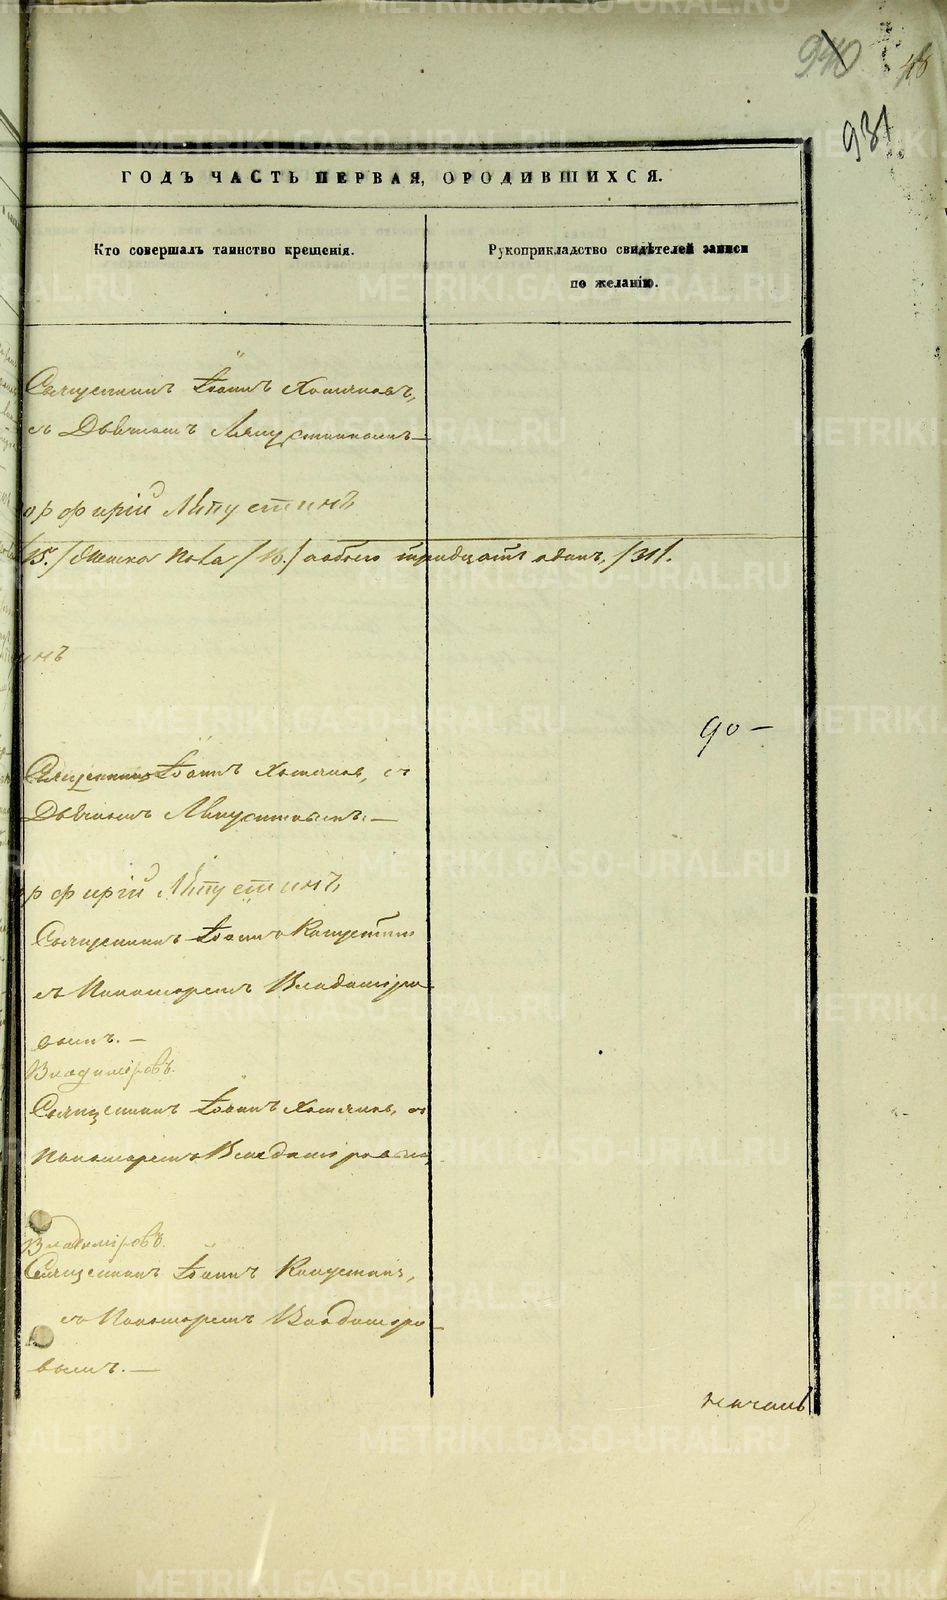 940 48
931
ГОДЪ ЧАСТЬ ПЕРВАЯ, ОРОДИВШИХСЯ.
Кто совершалъ таинство крещенія.
Рукоприкладство свидѣтелей записи
по желанію.
Священникъ Іоаннъ Хотяновъ,
съ Дьячкомъ Ляпустинымъ—
орфирій Ляпустинъ
15. / женска пола / 16. / обоего тридцать одинъ, / 31 /.
инъ
90 —
Священникъ Іоаннъ Хотяновъ, съ
Дьячкомъ Ляпустинымъ. —
орфирій Ляпустинъ
Священникъ Іоаннъ Капустинъ
съ Пономаремъ Владиміро-
вымъ. —
Владиміровъ.
Священникъ Іоаннъ Хотяновъ, съ
Пономаремъ Владиміровымъ
Владиміровъ.
Священникъ Іоаннъ Капустинъ,
съ Пономаремъ Владиміро-
вымъ. —
METRIKI.GASO-URAL.RU